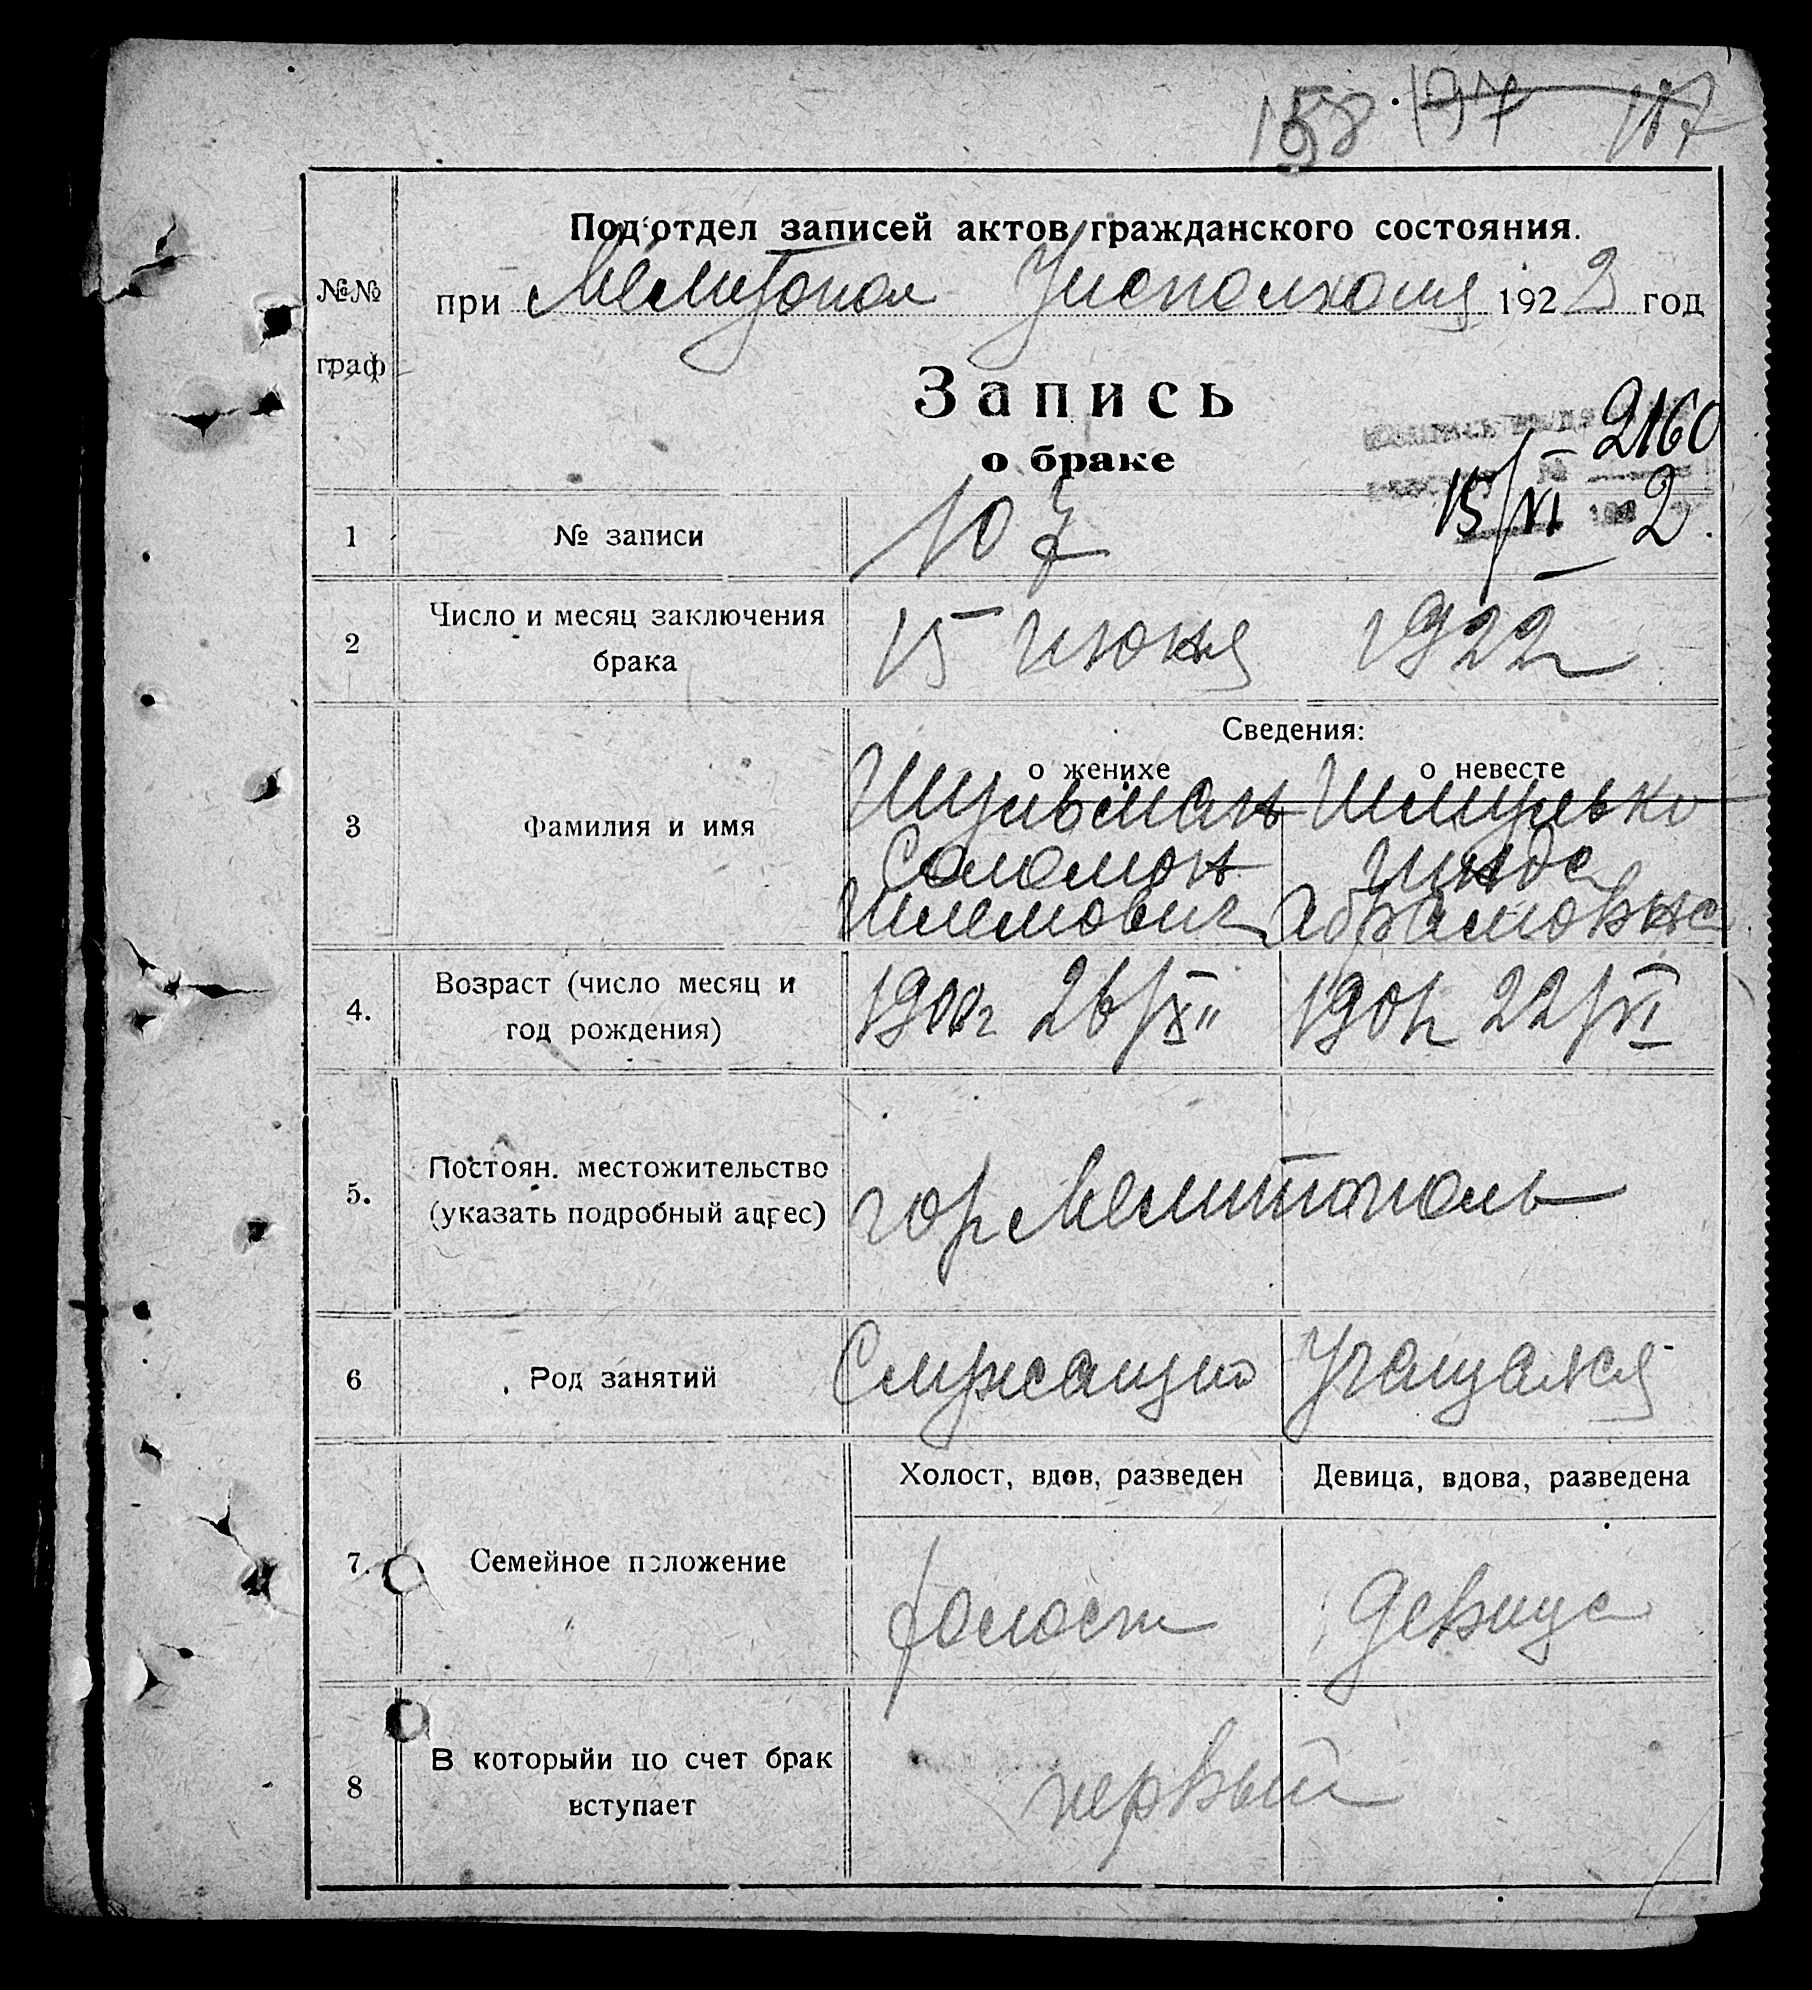 158 197 187
Под'отдел записей актов гражданского состояния.
№№
граф
при Мелитопол Уисполкома 1922 год
Запись
о браке
2160
15/VI 2.
1 № записи 107
2 Число и месяц заключения
брака
15 июня 1922
Сведения:
о женихе о невесте
3 Фамилия и имя
Шульман Шмулько
Соломон
Шлемович Абрамовна
4. Возраст (число месяц и
год рождения)
1900г 26/XII 1901г 22/VI
5. Постоян. местожительство
(указать подробный адрес)
гор Мелитополь
6 Род занятий Служащий Учащаяся
Холост, вдов, разведен Девица, вдова, разведена
7. Семейное положение
холост девица
8 В которыйи по счет брак
вступает
первый